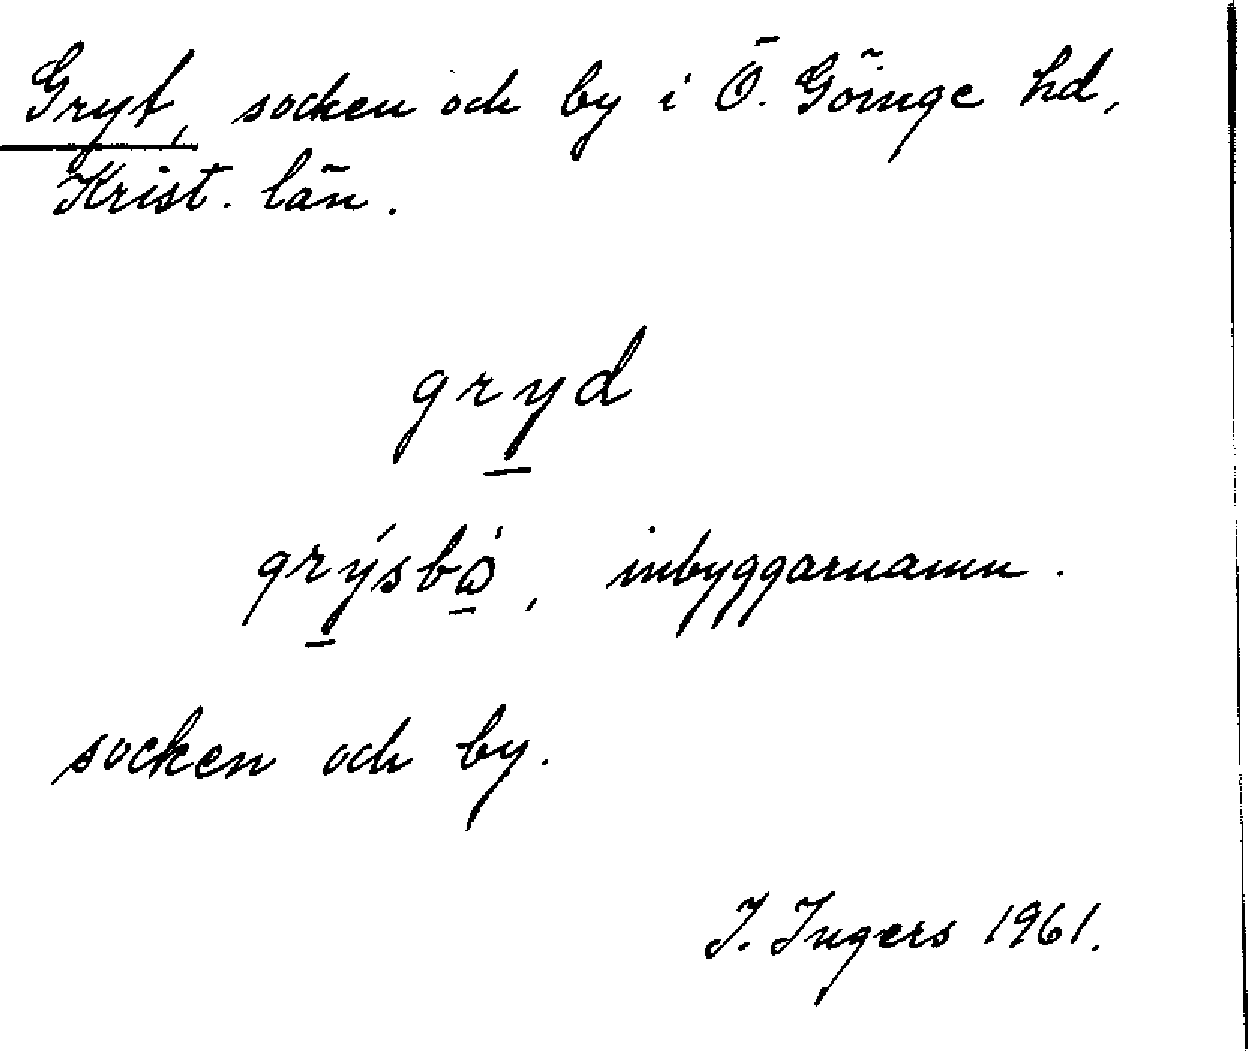 Gryt, socken och by i Ö. Göinge hd,
Krist. län.
gryd
grýsbó, inbyggarnamn.
socken och by.
I. Ingers 1961.